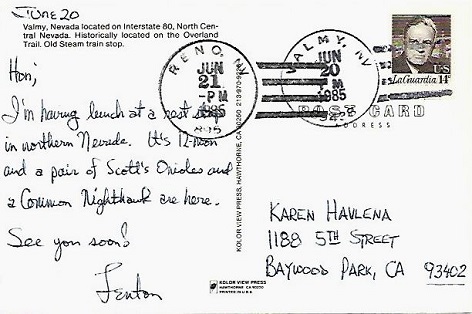 June 20
Valmy, Nevada located on Interstate 80, North Cen-
tral Nevada. Historically located on the Overland
Trail. Old Steam train stop.
Hon,
I'm having lunch at a rest stop
in northern Nevada. It's 12-noon
and a pair of Scott's Orioles and
a Common Nighthawk are here.
See you soon!
Fenton
RENO, NV
JUN
21
PM
1985
895
VALMY, NV
JUN
20
PM
1985
US
LaGuardia 14¢
POST CARD
ADDRESS
KOLOR VIEW PRESS, HAWTHORNE, CA 90250
KAREN HAVLENA
1188 5TH STREET
BAYWOOD PARK, CA 93402
KOLOR VIEW PRESS
HAWTHORNE, CA 90250
PRINTED IN U.S.A.